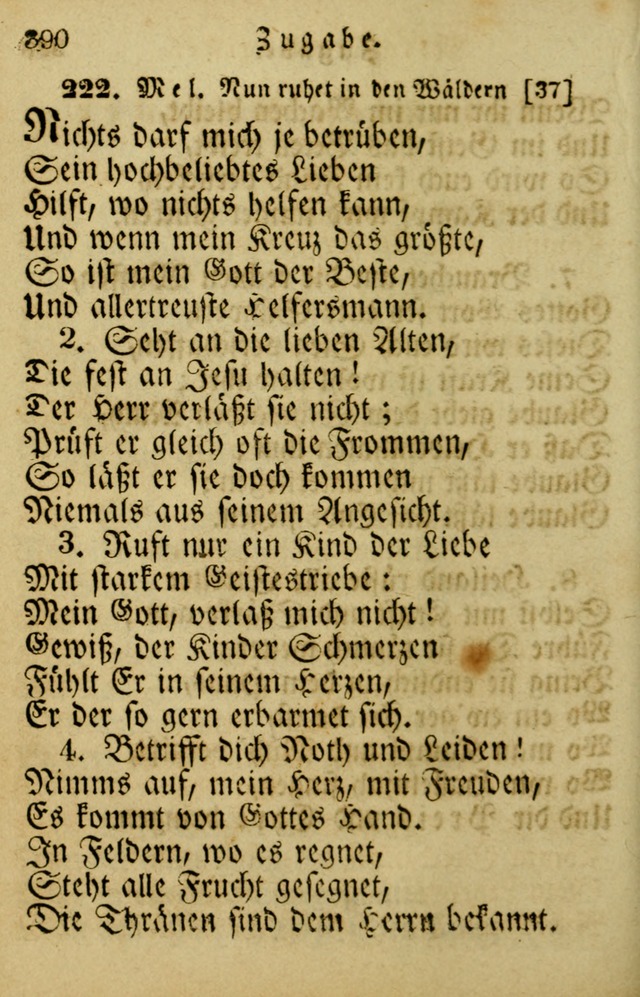 390 Zugabe.
222. Mel. Nun ruhet in den Wäldern [37]
Nichts darf mich je betrüben,
Sein hochbeliebtes Lieben
Hilft, wo nichts helfen kann,
Und wenn mein Kreuz das größte,
So ist mein Gott der Beste,
Und allertreuste Helfersmann.
2. Seht an die lieben Alten,
Die fest an Jesu halten!
Der Herr verläßt sie nicht;
Prüft er gleich oft die Frommen,
So läßt er sie doch kommen
Niemals aus seinem Angesicht.
3. Ruft nur ein Kind der Liebe
Mit starkem Geistestriebe:
Mein Gott, verlaß mich nicht!
Gewiß, der Kinder Schmerzen
Fühlt Er in seinem Herzen,
Er der so gern erbarmet sich.
4. Betrifft dich Noth und Leiden!
Nimms auf, mein Herz, mit Freuden,
Es kommt von Gottes Hand.
In Feldern, wo es regnet,
Steht alle Frucht gesegnet,
Die Thränen sind dem Herrn bekannt.